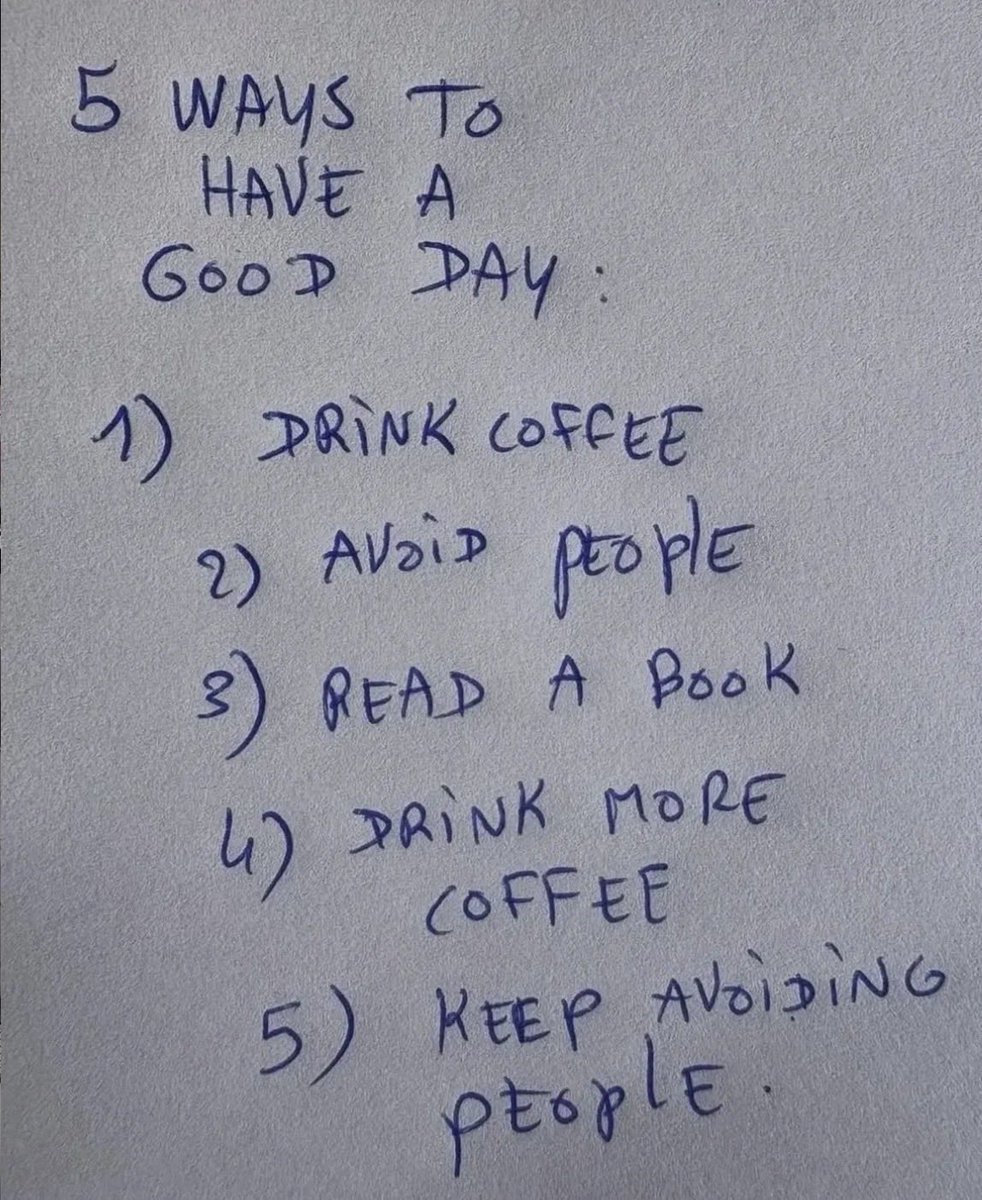 5 WAYS TO
HAVE A
GOOD DAY:
1) DRINK COFFEE
2) AVOID PEOPLE
3) READ A BOOK
4) DRINK MORE
COFFEE
5) KEEP AVOIDING
PEOPLE.